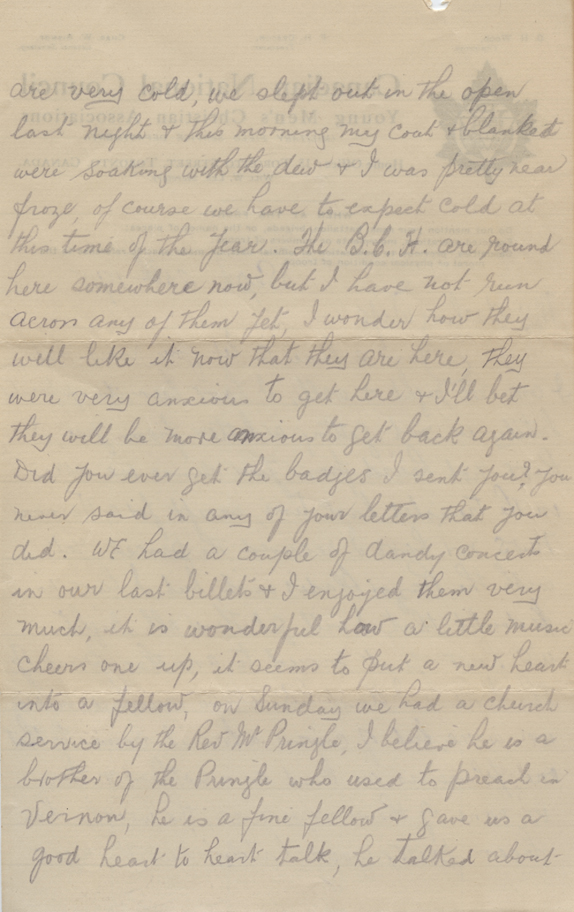 are very cold, we slept out in the open
last night & this morning my coat & blanket
were soaking with the dew & I was pretty near
froze, of course we have to expect cold at
this time of the year. The B.C.H. are round
here somewhere now, but I have not run
across any of them yet, I wonder how they
will like it now that they are here, they
were very anxious to get here & I'll bet
they will be more anxious to get back again.
Did you ever get the badges I sent you? You
never said in any of your letters that you
did. WE had a couple of dandy concerts
in our last billets & I enjoyed them very
much, it is wonderful how a little music
cheers one up, it seems to put a new heart
into a fellow, on Sunday we had a church
service by the Rev Mr Pringle, I believe he is a
brother of the Pringle who used to preach in
Vernon, he is a fine fellow & gave us a
good heart to heart talk, he talked about